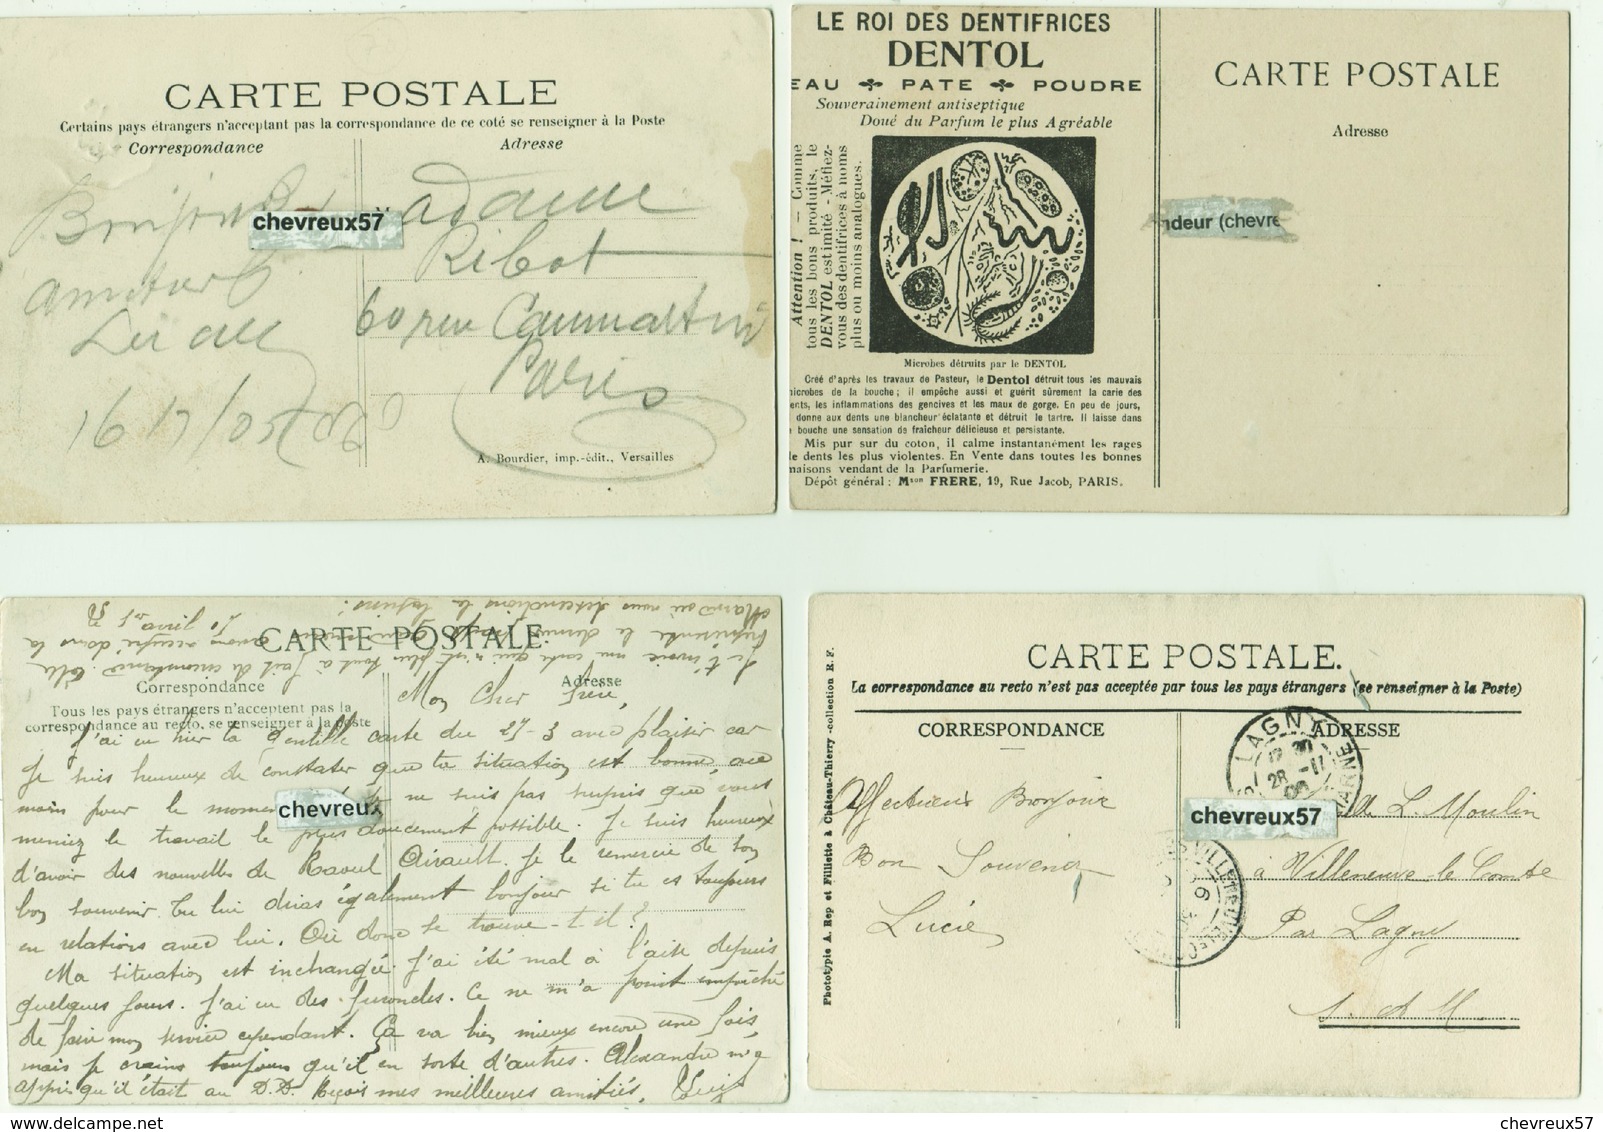 CARTE POSTALE
Certains pays étrangers n'acceptent pas la correspondance de ce coté se renseigner à la Poste
Correspondance
Adresse
Bonjour
chevreux57
adame
Ribot
60 rue Caumartin
Paris
A. Bourdier, imp.-édit., Versailles
LE ROI DES DENTIFRICES
DENTOL
EAU ✤ PATE ✤ POUDRE
Souverainement antiseptique
Doué du Parfum le plus Agréable
Attention ! — Comme
tous les bons produits, le
DENTOL est imité - Méfiez-
vous des dentifrices à noms
plus ou moins analogues.
Microbes détruits par le DENTOL
Créé d'après les travaux de Pasteur, le Dentol détruit tous les mauvais
microbes de la bouche ; il empêche aussi et guérit sûrement la carie des
ents, les inflammations des gencives et les maux de gorge. En peu de jours,
donne aux dents une blancheur éclatante et détruit le tartre. Il laisse dans
bouche une sensation de fraîcheur délicieuse et persistante.
Mis pur sur du coton, il calme instantanément les rages
de dents les plus violentes. En Vente dans toutes les bonnes
maisons vendant de la Parfumerie.
Dépôt général : Mson FRERE, 19, Rue Jacob, PARIS.
CARTE POSTALE
Adresse
ndeur (chevre
Je t'envoie une carte qui n'est plus tout à fait de circonstance. Elle
représente le dernier
Marne où nous descendions
CARTE POSTALE
Correspondance
Adresse
Tous les pays étrangers n'acceptent pas la
correspondance au recto, se renseigner à la poste
Mon Cher frère,
J'ai eu hier ta gentille carte du 27-3 avec plaisir car
je suis heureux de constater que ta situation est bonne, au
moins pour le momen ne suis pas surpris que vous
meniez le travail le plus doucement possible. Je suis heureux
d'avoir des nouvelles de Raoul Airault. Je le remercie de son
bon souvenir. Tu lui diras également bonjour si tu es toujours
en relations avec lui. Où donc se trouve-t-il ?
Ma situation est inchangée. J'ai été mal à l'aise depuis
quelques jours. J'ai eu des furoncles. Ce ne m'a point empêché
de faire mon service cependant. Ça va bien mieux encore une fois,
mais je crains toujours qu'il en sorte d'autres. Alexandre m'a
appris qu'il était au D.D. Reçois mes meilleures amitiés.
chevreux
CARTE POSTALE.
La correspondance au recto n'est pas acceptée par tous les pays étrangers (se renseigner à la Poste)
CORRESPONDANCE
ADRESSE
Phototypie A. Rep et Filliette à Château-Thierry -collection R. F.
LAGNY
28 -11
MARNE
chevreux57
Affectueux Bonjour
Bon Souvenir
Lucie
M. L. Moulin
à Villeneuve-le-Comte
Par Lagny
S. et M.
chevreux57